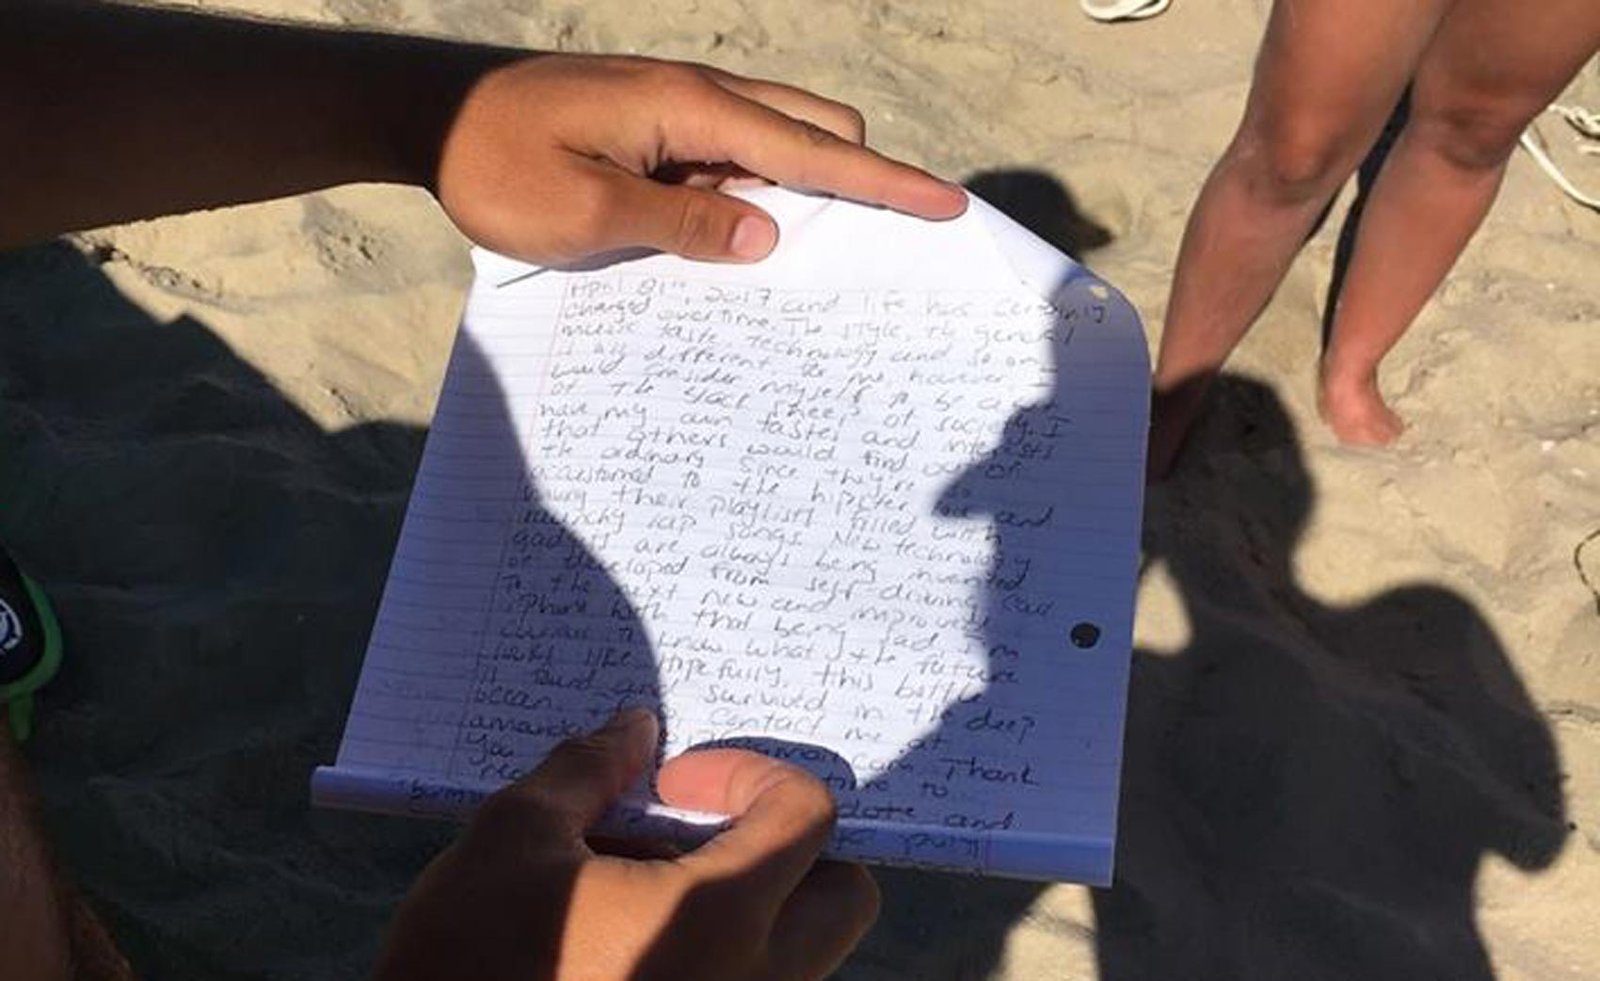 April 21st, 2017 and life has certainly
changed overtime. The style, the general
music taste, technology and so on
is all different to me, however I
would consider myself to be a
of the black sheep of society. I
have my own tastes and interests
that others would find out of
the ordinary since they're so
accustomed to the hipster and
having their playlists filled with
raunchy rap songs. New technology
gadgets are always being invented
or developed from self-driving cars
to the next new and improved
iPhone. With that being said, I'm
curious to know what the future
looks like. Hopefully, this bottle
is found and survived in the deep
ocean. contact me at
amanda .com. Thank
You time to
rea date and